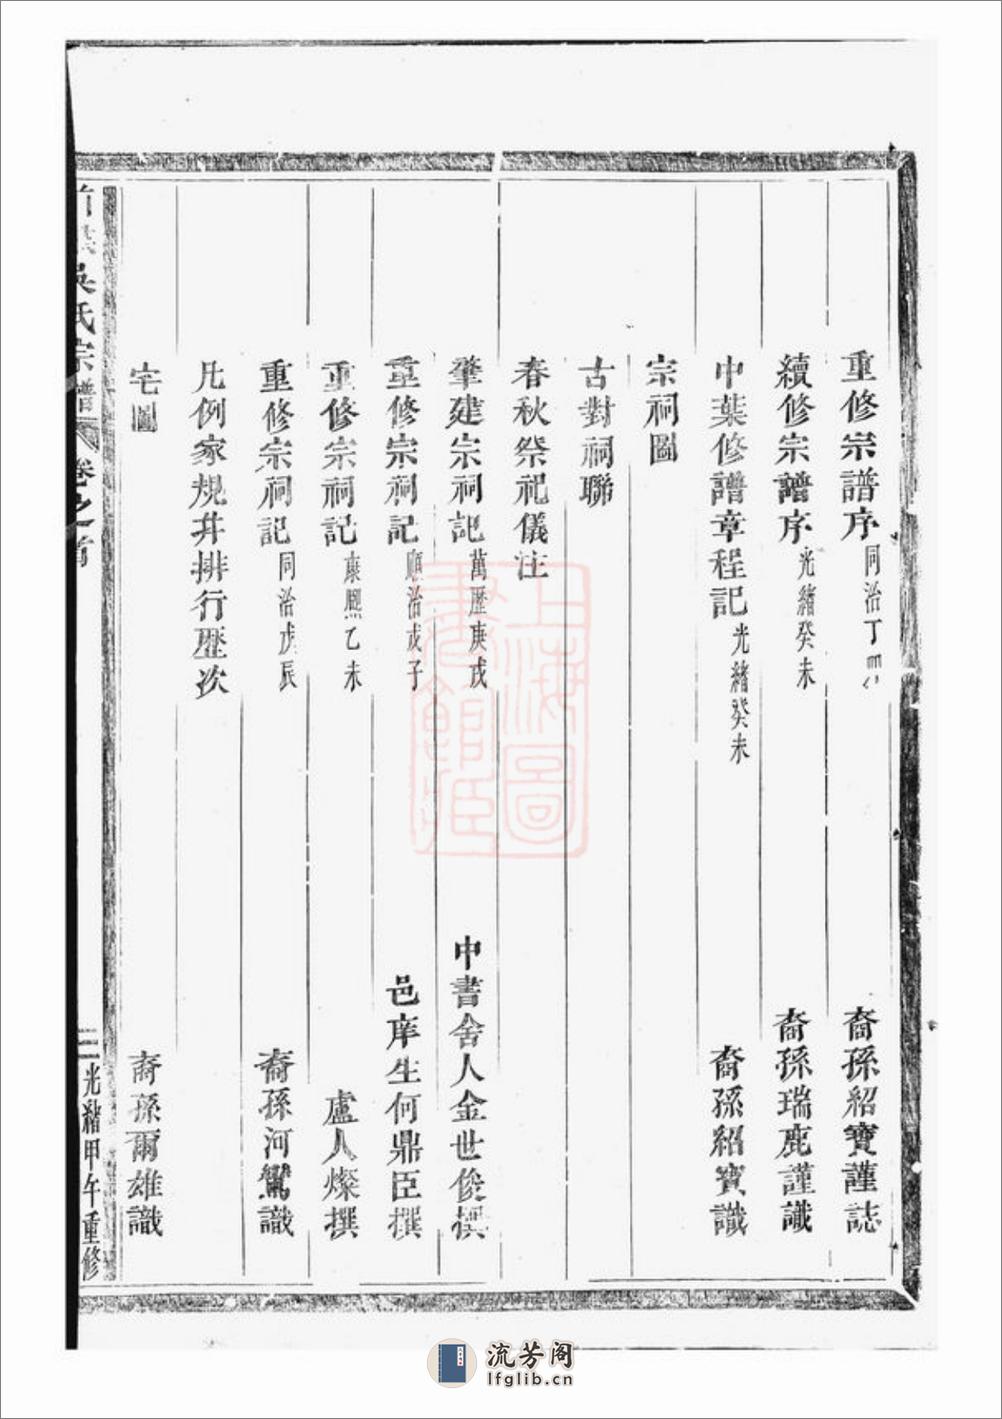 重修宗譜序 同治丁 裔孫紹寶謹誌
續修宗譜序 光緒癸未 裔孫瑞鹿謹識
中葉修譜章程記 光緒癸未 裔孫紹寶識
宗祠圖
古對祠聯
春秋祭祀儀注
肇建宗祠記 萬歷庚戌 中書舍人金世俊撰
重修宗祠記 順治戊子 邑庠生何鼎臣撰
重修宗祠記 康熙乙未 盧人燦撰
重修宗祠記 同治戊辰 裔孫河識
凡例家規并排行歷次
宅圖 裔孫爾雄識
吳氏宗譜 卷之首 三 光緒甲午重修
上海圖書館藏
流芳阁
lfglib.cn